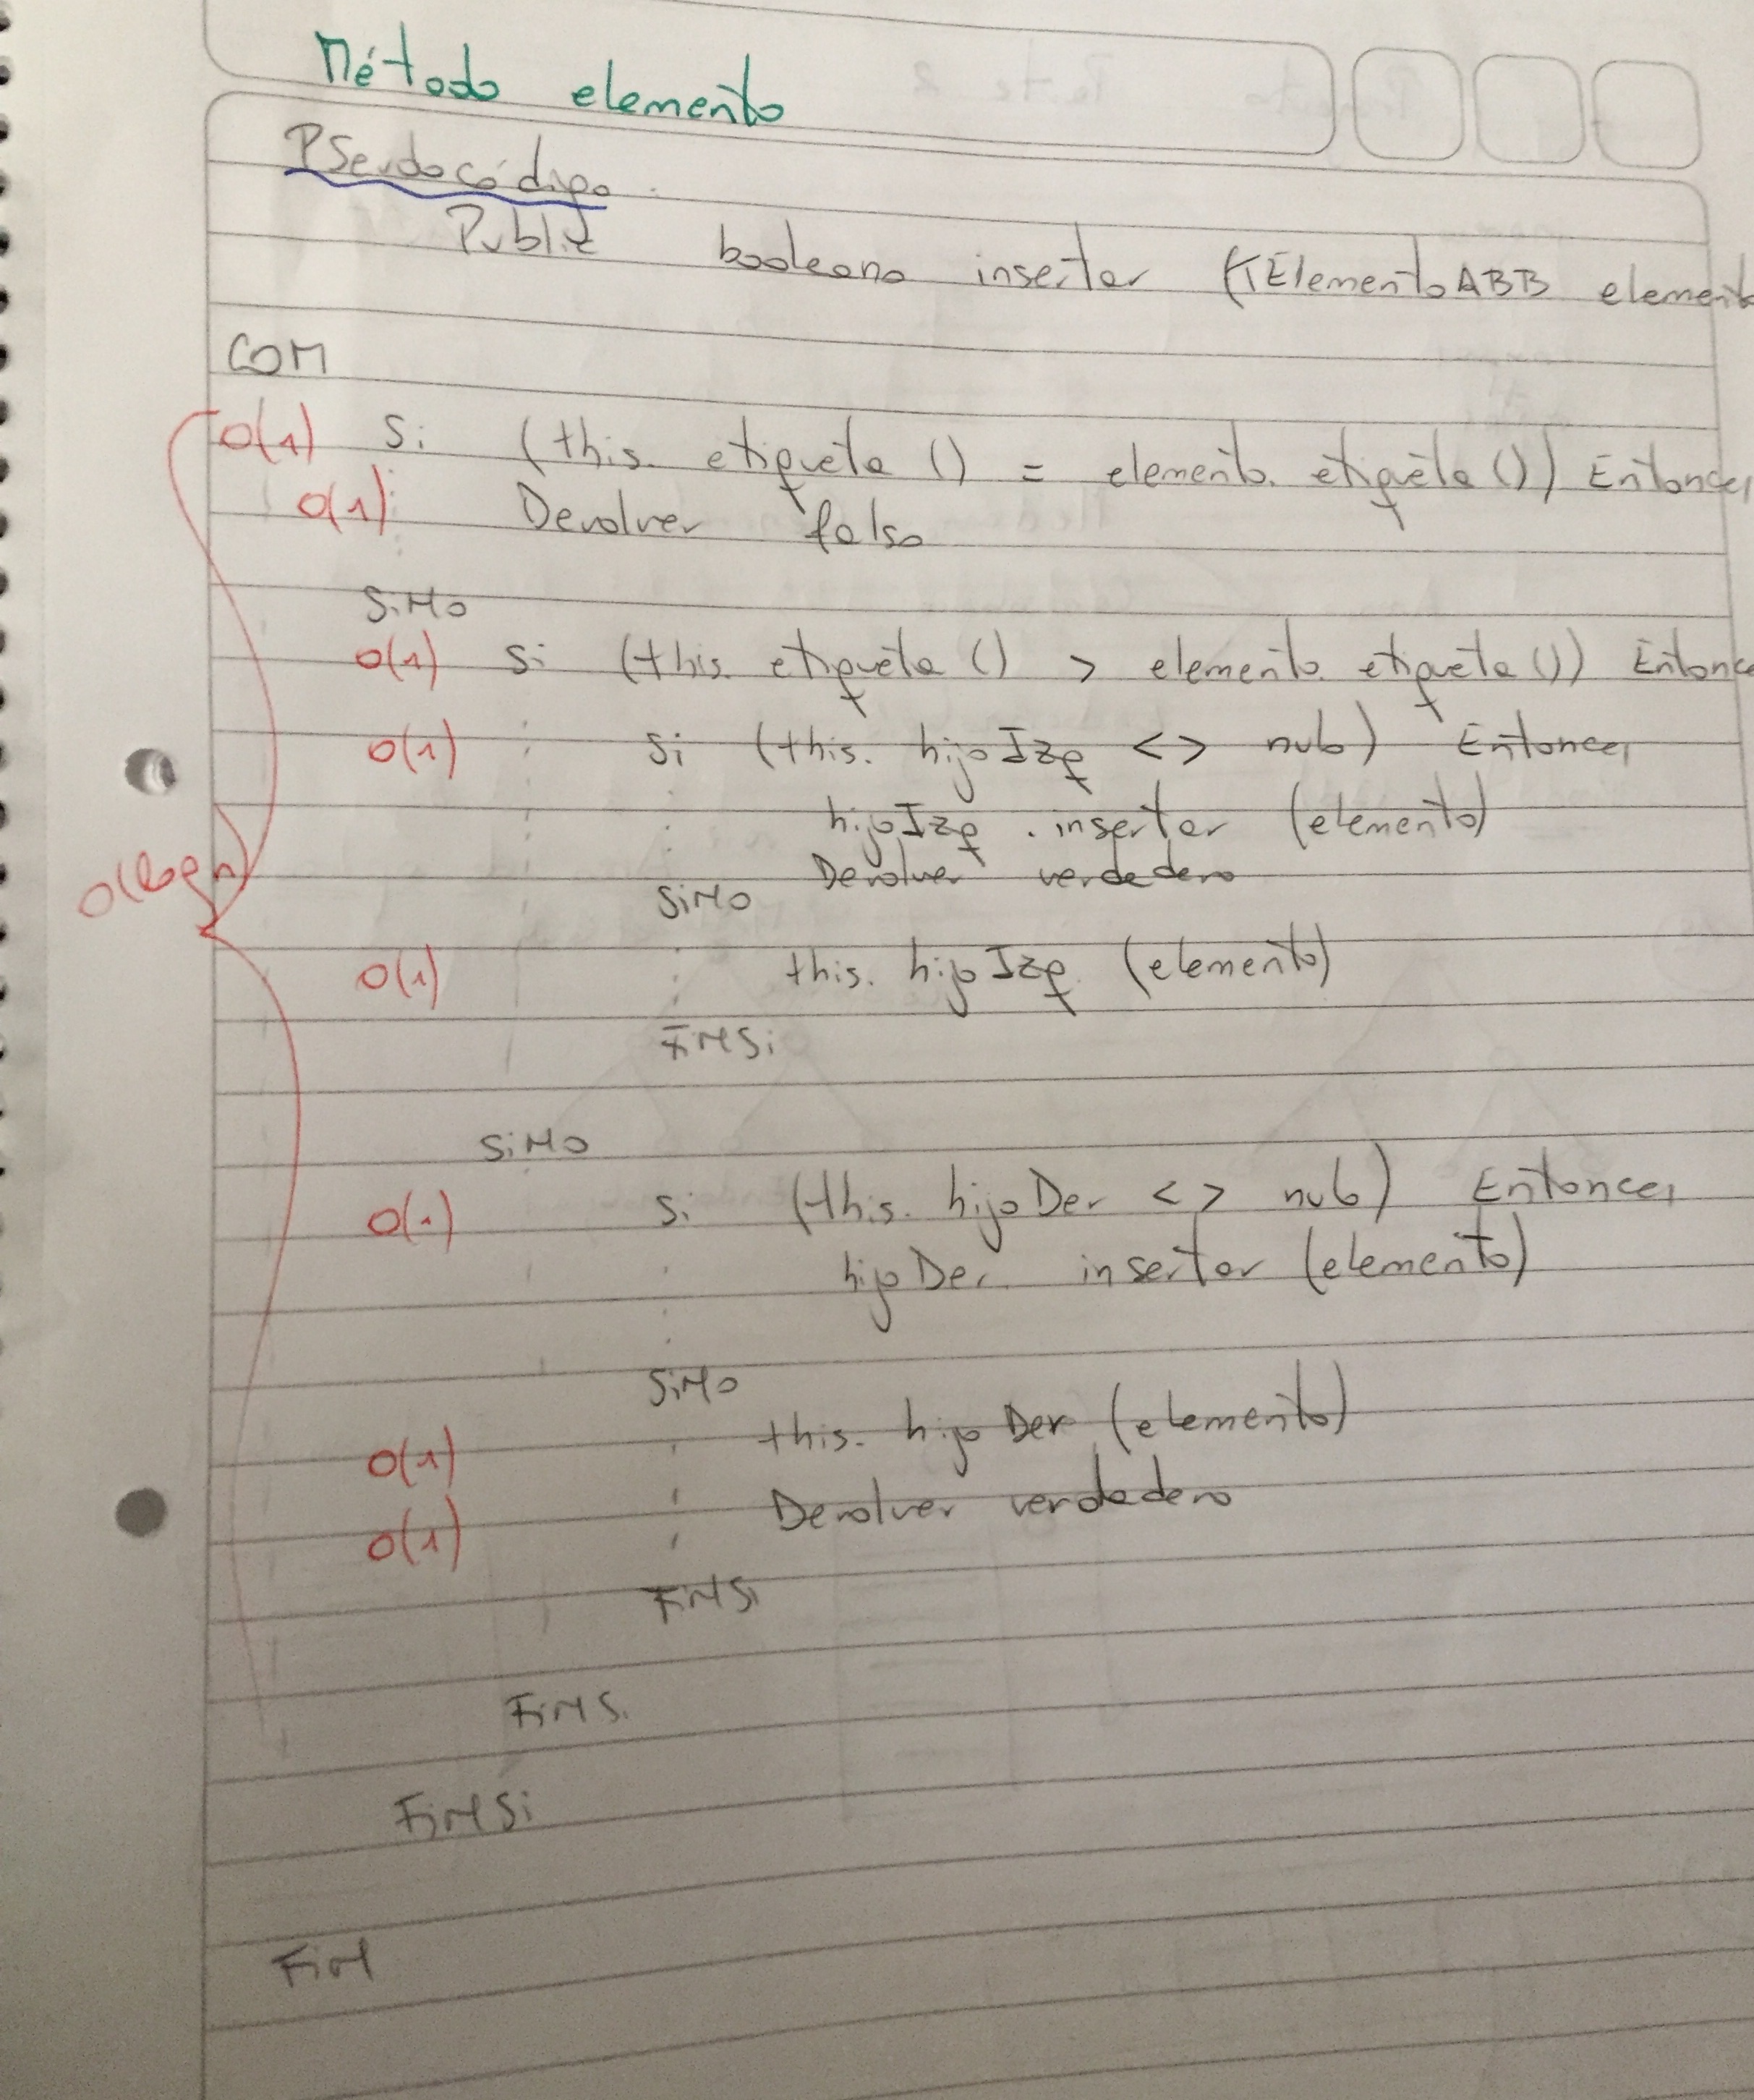 Método elemento
Pseudocódigo
Public booleano insertar (TElementoABB elemento
COM
O(1) Si (this. etiqueta () = elemento. etiqueta ()) Entonces
O(1) Devolver falso
SiNo
O(1) Si (this. etiqueta () > elemento. etiqueta ()) Entonce
O(1) Si (this. hijoIzq <> nulo) Entonces
hijoIzq . insertar (elemento)
Devolver verdadero
O(log n)
SiNo
O(1) this. hijoIzq (elemento)
FinSi
SiNo
O(1) Si (this. hijoDer <> nulo) Entonces
hijoDer. insertar (elemento)
SiNo
O(1) this. hijoDer (elemento)
O(1) Devolver verdadero
FinSi
FinSi
FinSi
Fin